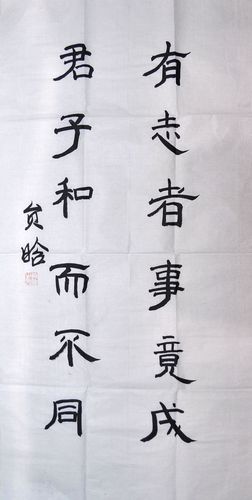 有志者事竟成
君子和而不同
贠晗